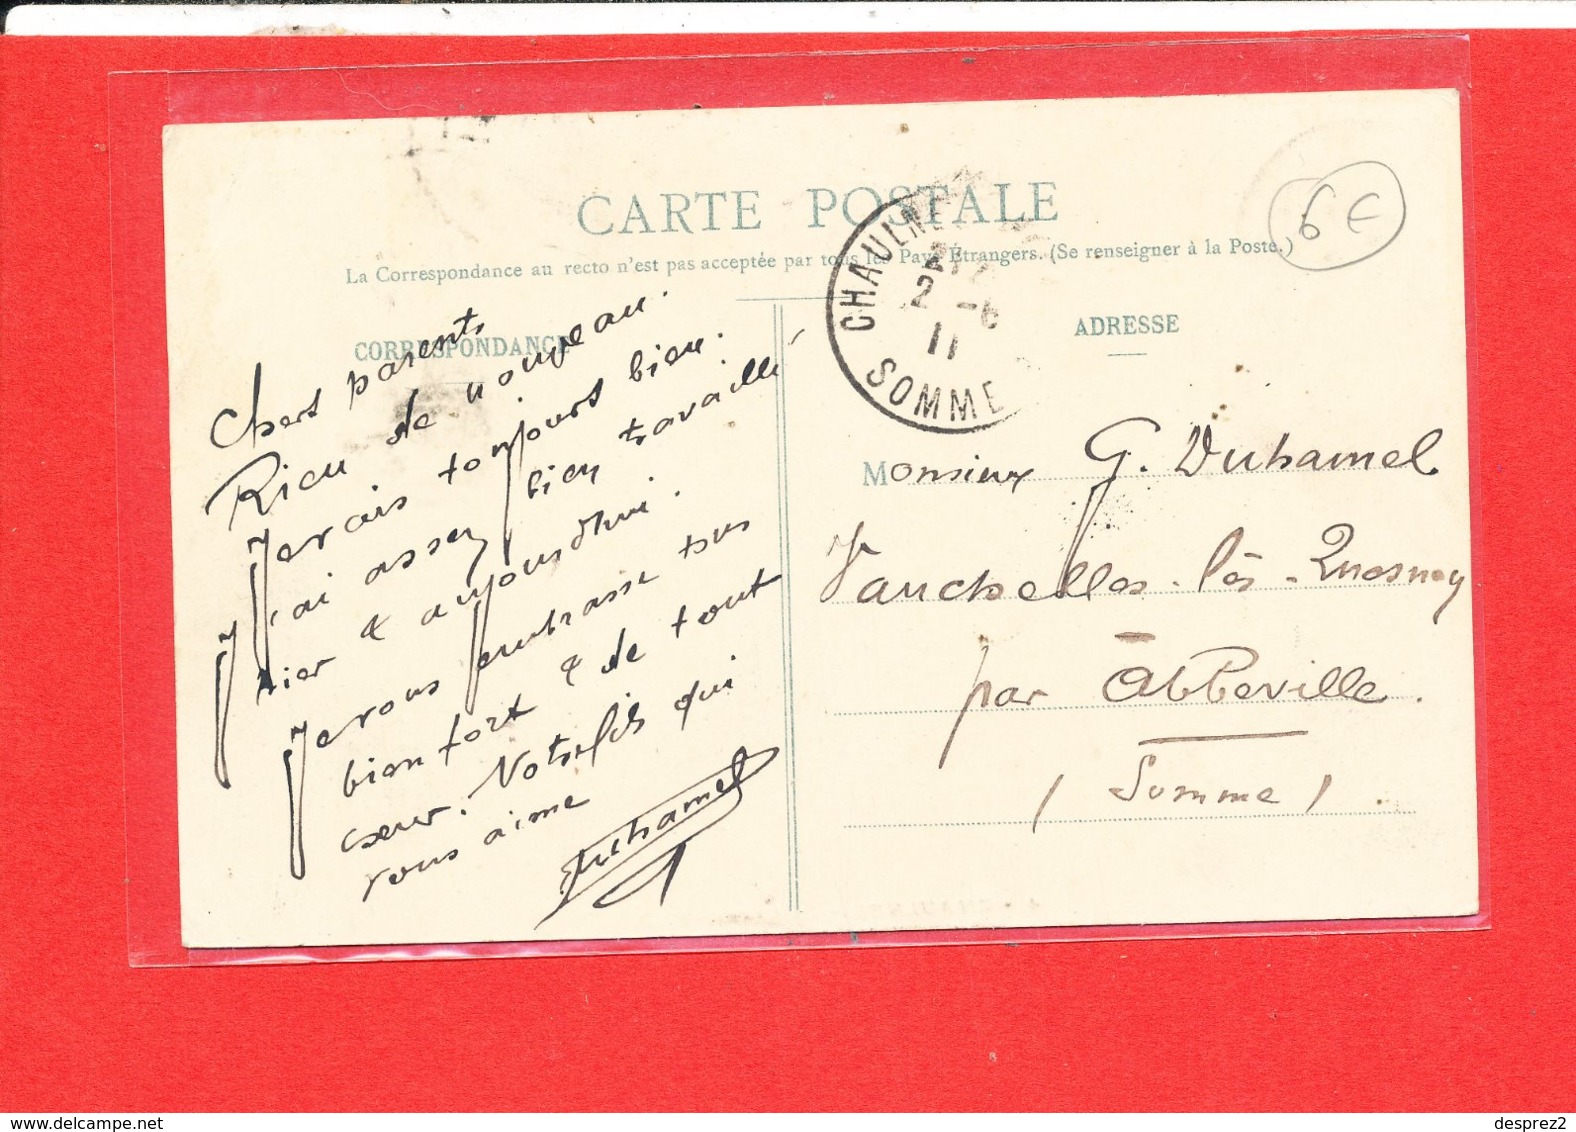 CARTE POSTALE
La Correspondance au recto n'est pas acceptée par tous les Pays Étrangers. (Se renseigner à la Poste.)
6 €
CORRESPONDANCE
Chers parents
Rien de nouveau.
Je vais toujours bien.
J'ai assez bien travaillé
hier & aujourd'hui.
Je vous embrasse tous
bien fort & de tout
cœur. Notre fils qui
vous aime
Duhamel
CHAULNE
2 -6
11
SOMME
ADRESSE
Monsieur G. Duhamel
Vauchelles-lès-Quesnoy
par Abbeville.
(Somme)
delcampe.net
desprez2